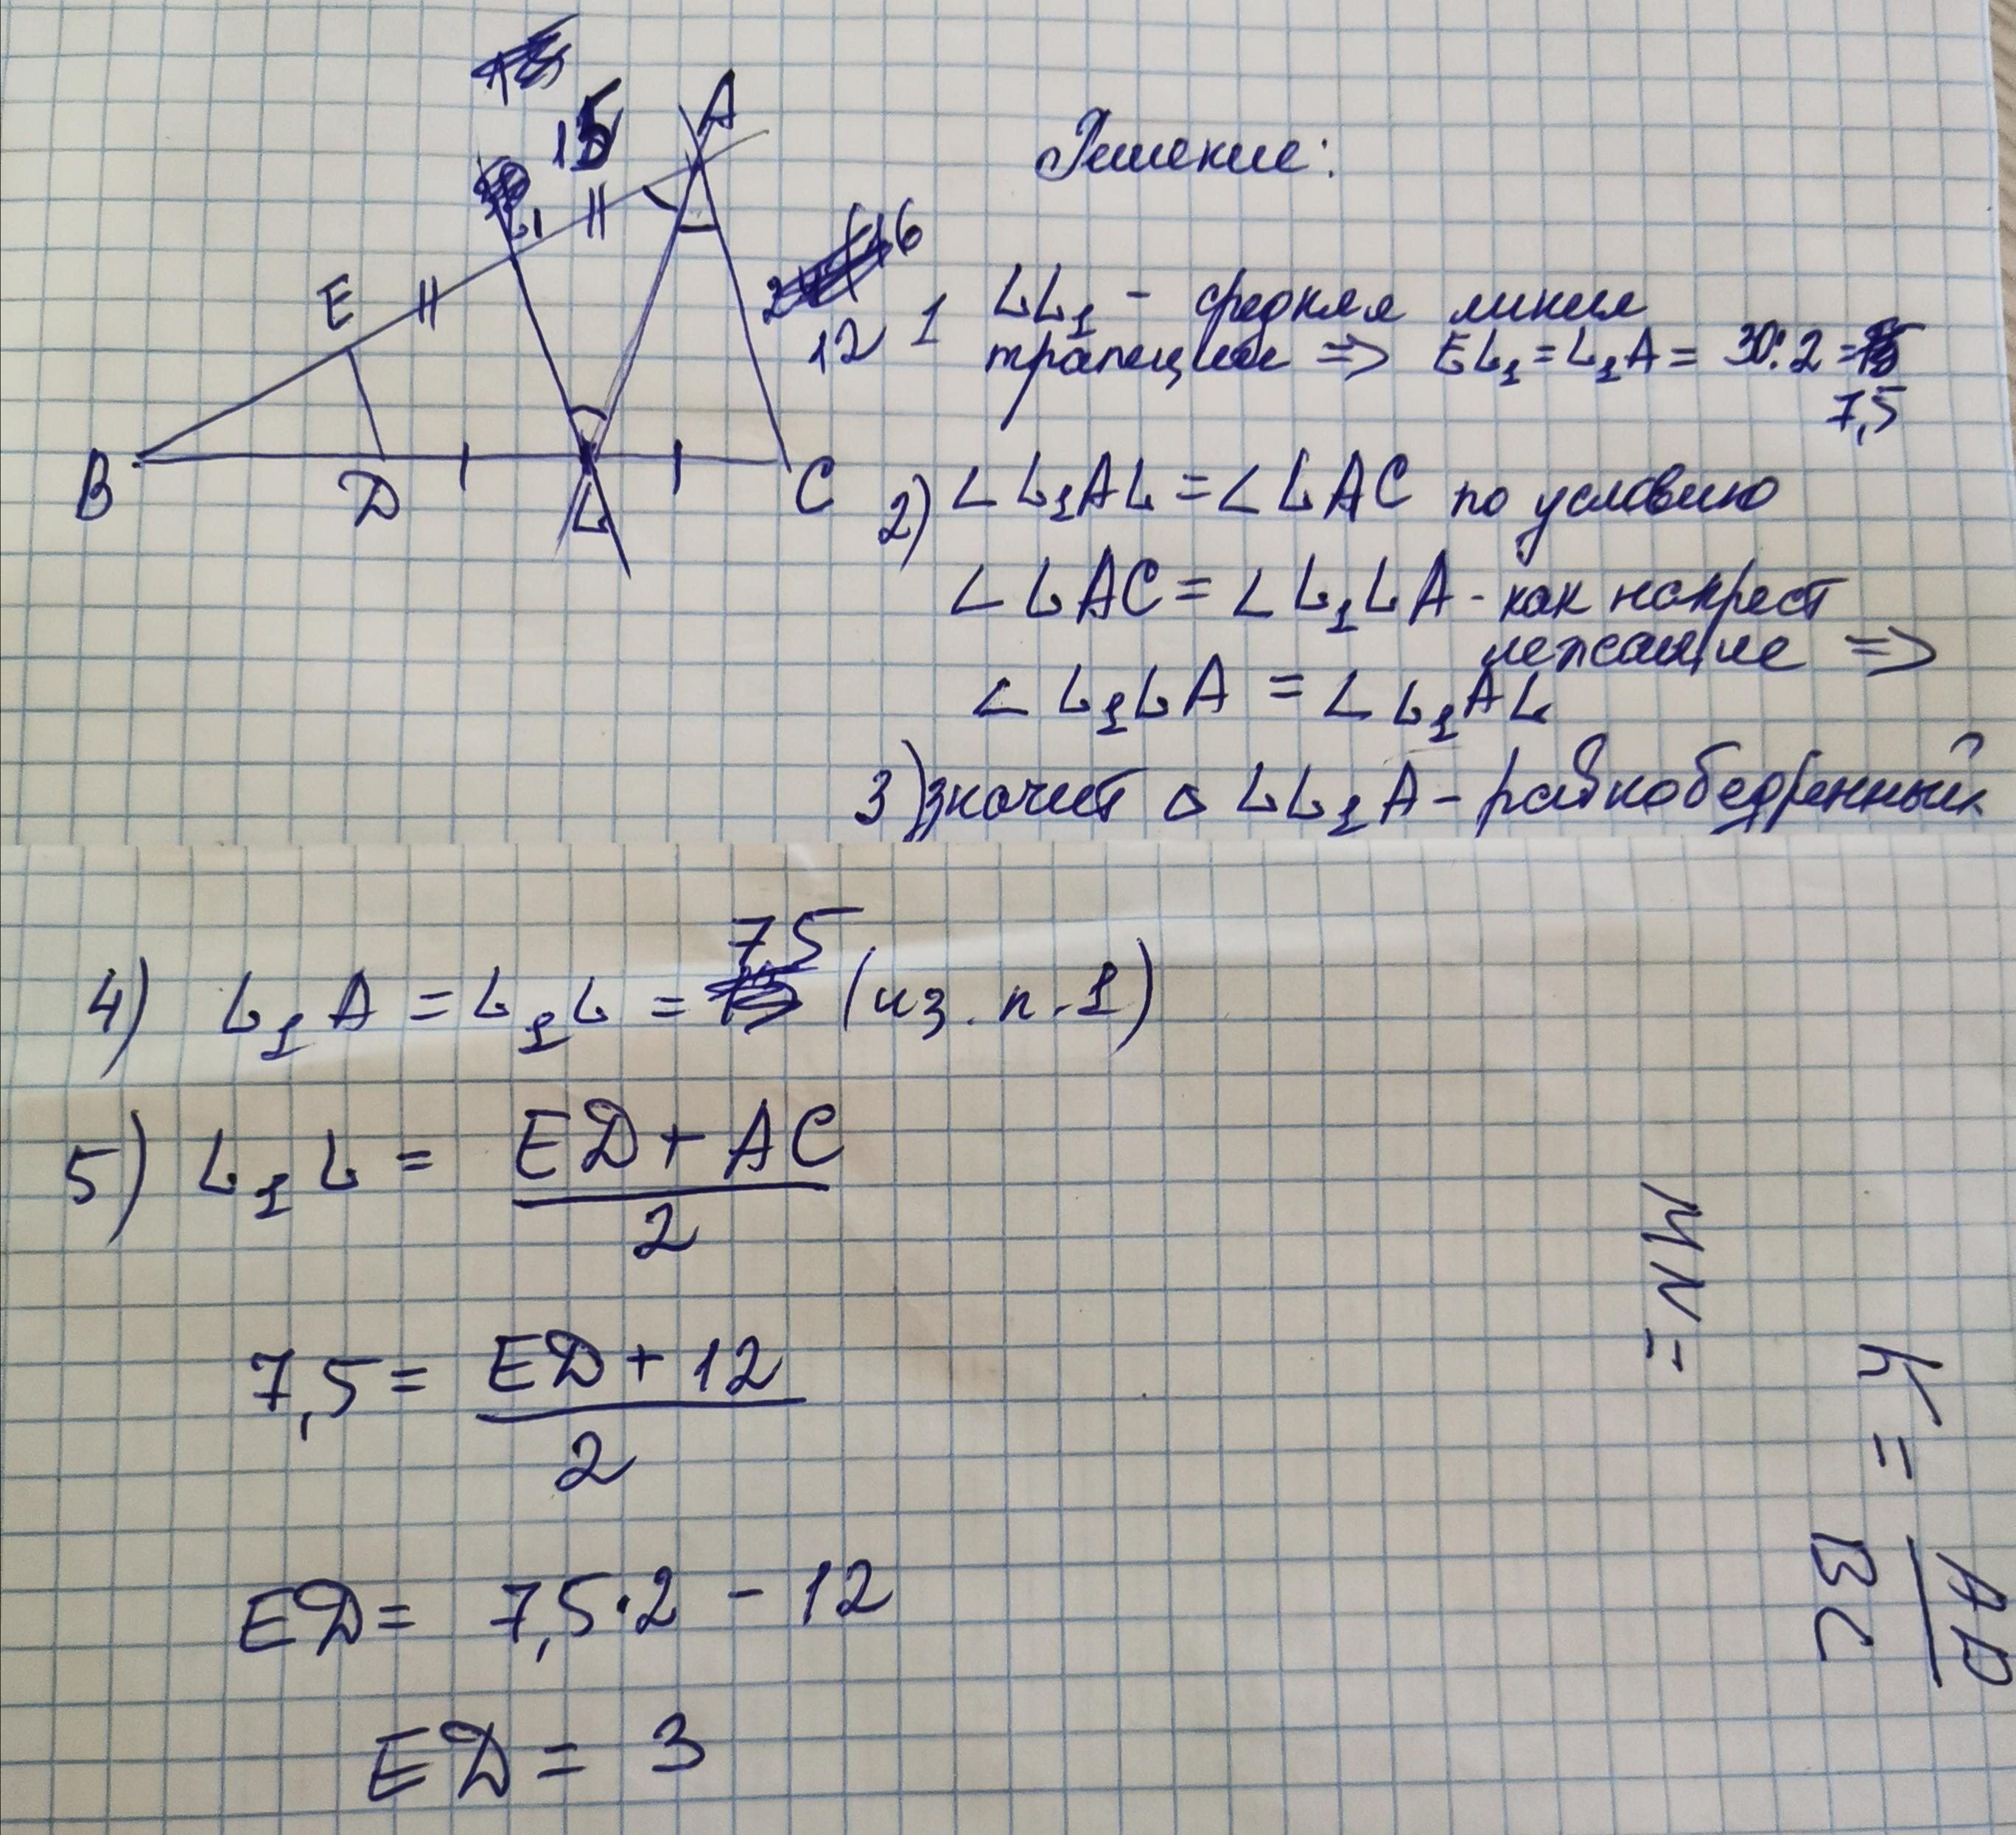 15
A
L1
E
16
12
B
D
L
C
Решение:
1 LL₁ - средняя линия
трапеции => EL₁ = L₁A = 30:2 =
7,5
2) ∠L₁AL = ∠LAC по условию
∠LAC = ∠L₁LA - как накрест
лежащие =>
∠L₁LA = ∠L₁AL
3) значит △ LL₁A - равнобедренный
4) L₁A = L₁L = 7,5 (из. п. 1)
5) L₁L = ED + AC
2
7,5 = ED + 12
2
ED = 7,5·2 - 12
ED = 3
MN =
AD
BC